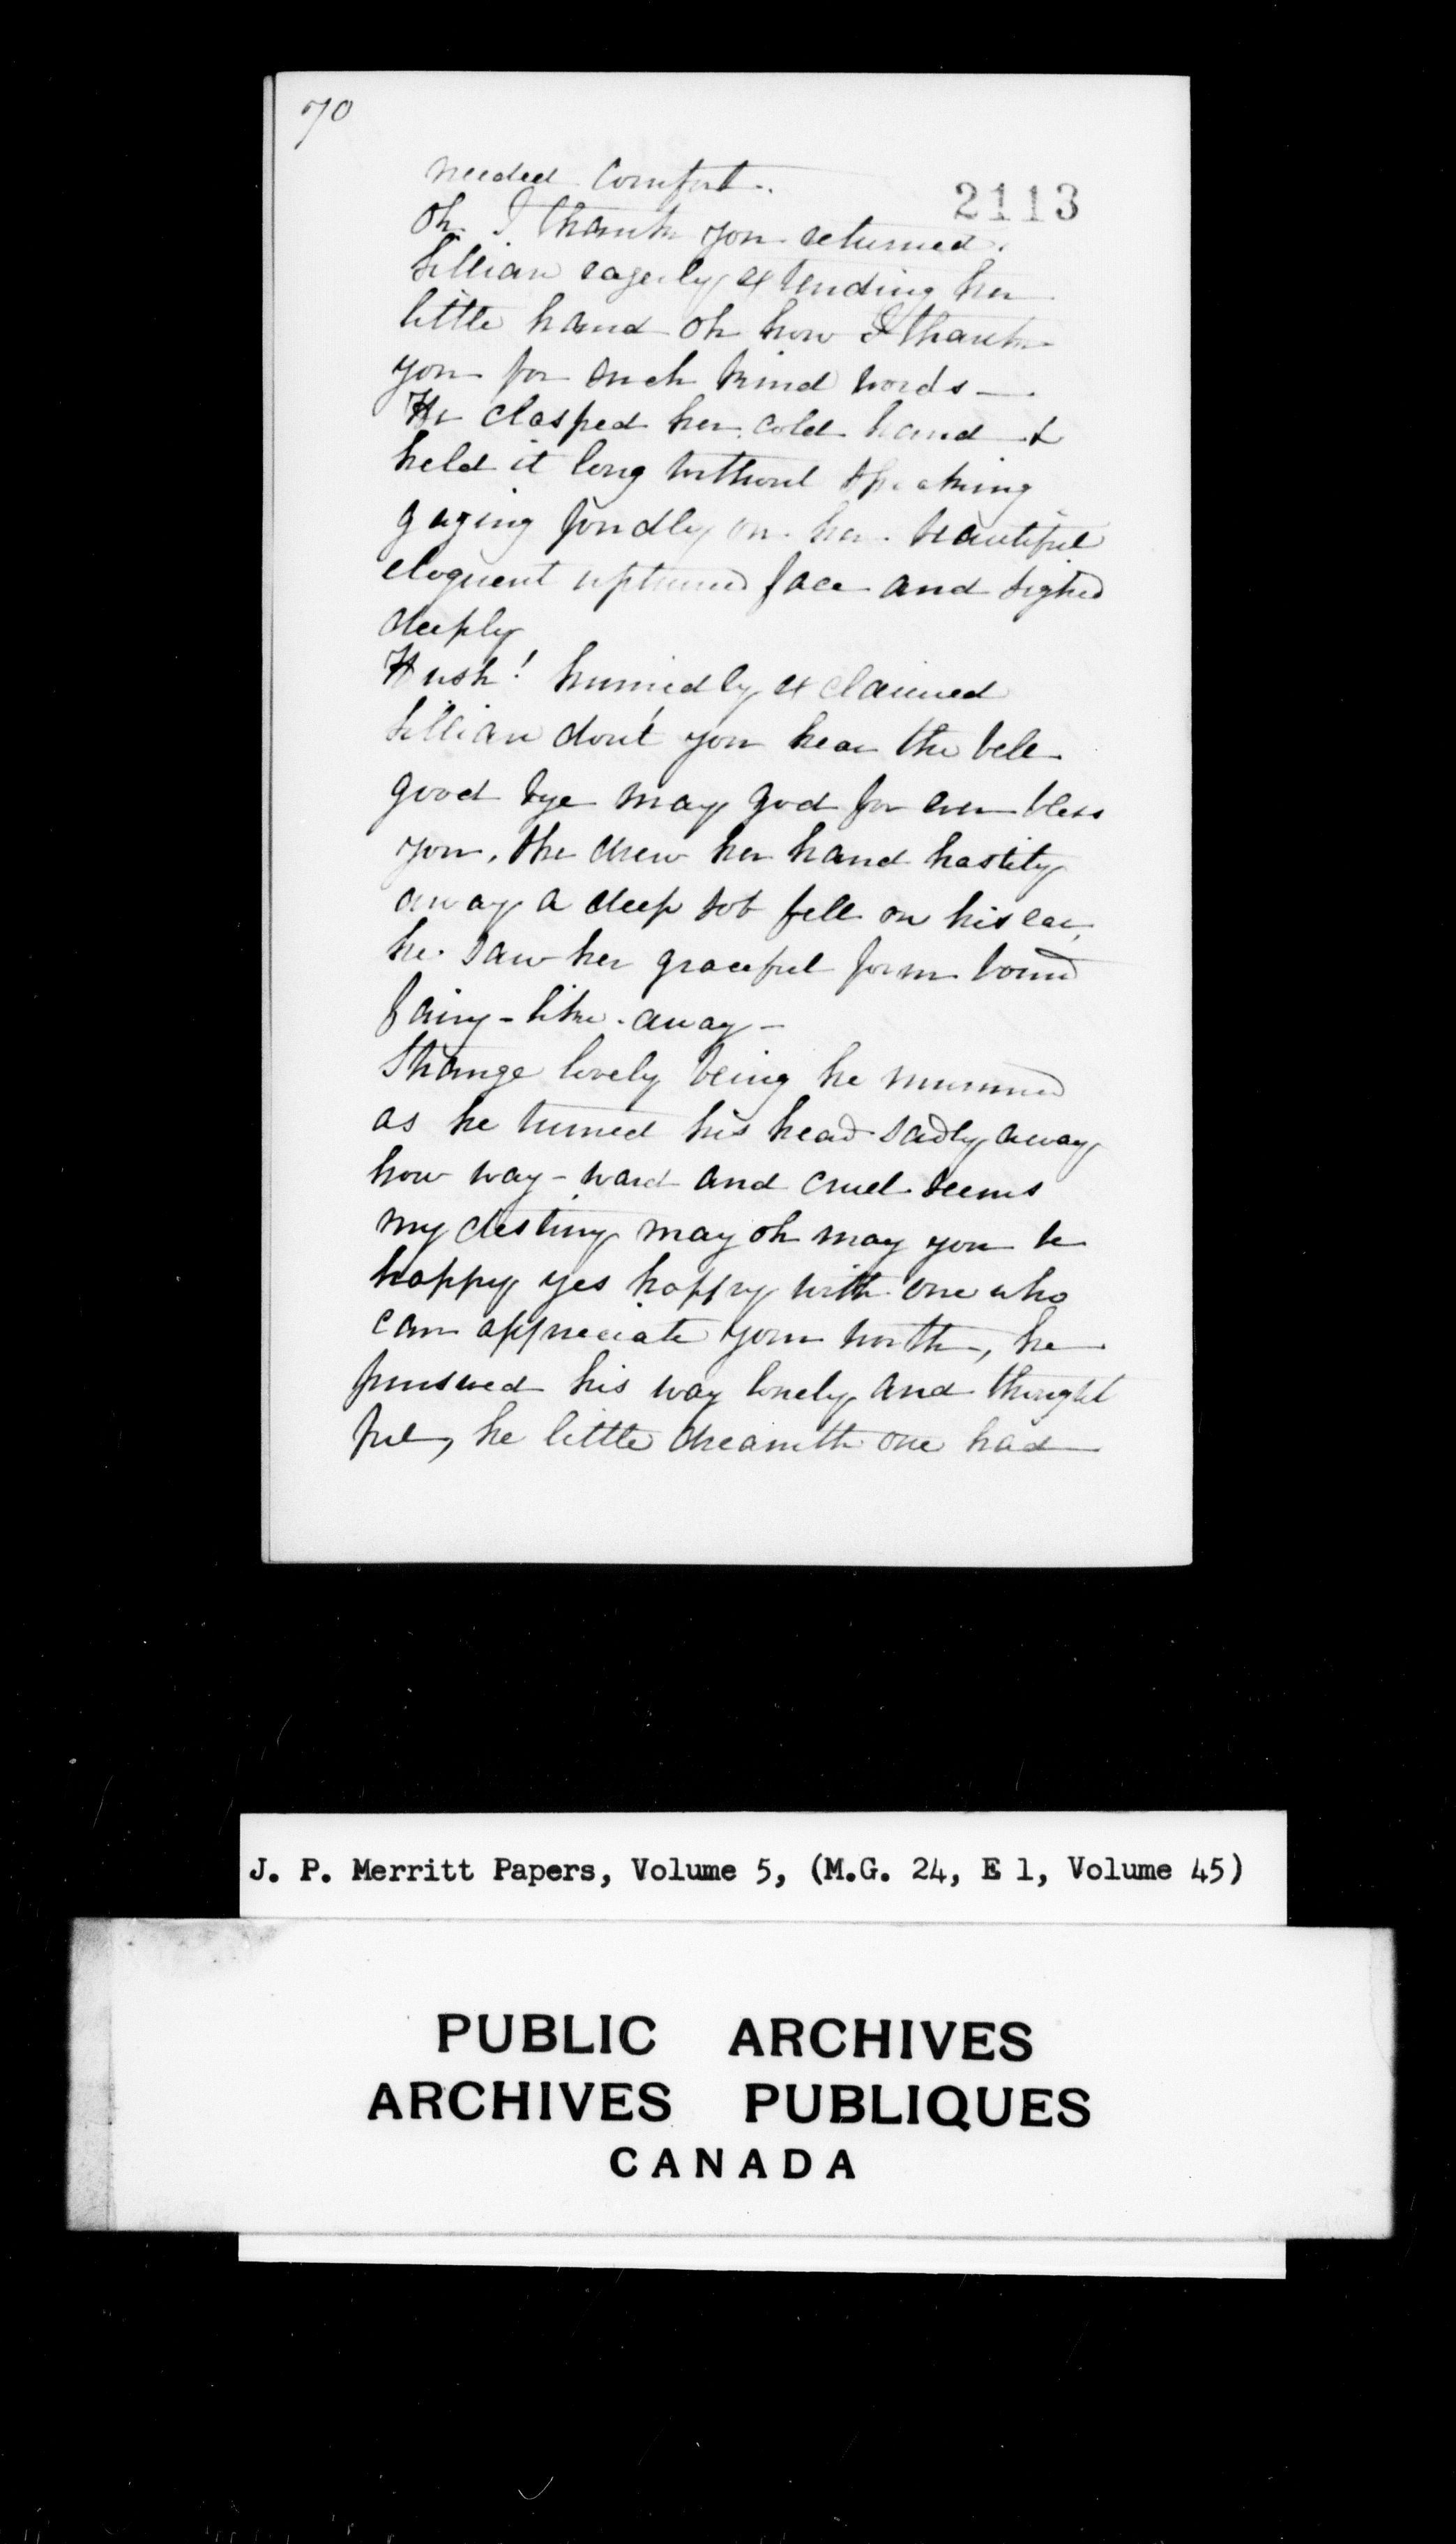 70
2113
needed comfort.
Oh I thank you returned.
Lillian eagerly extending her
little hand oh how I thank
you for such kind words —
He clasped her cold hand &
held it long without speaking
gazing fondly on her beautiful
eloquent upturned face and sighed
deeply
Hush! hurriedly exclaimed
Lillian don't you hear the bell
good bye may god for ever bless
you, she drew her hand hastily
away a deep sob fell on his ear,
he saw her graceful form bound
fairy-like away —
Strange lovely being he murmured
as he turned his head sadly away
how way-ward and cruel seems
my destiny may oh may you be
happy yes happy with one who
can appreciate your worth, he
pursued his way lonely and thought
ful, he little dreamth one had
J. P. Merritt Papers, Volume 5, (M.G. 24, E 1, Volume 45)
PUBLIC ARCHIVES
ARCHIVES PUBLIQUES
CANADA